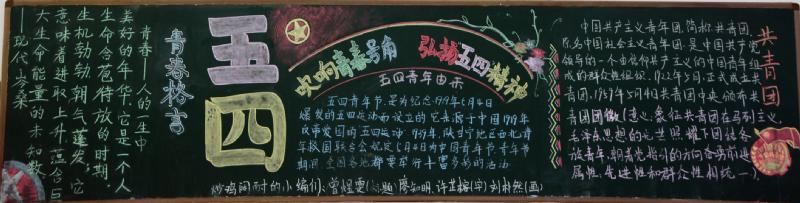 青春格言
青春——人的一生中
美好的年华，它是一个人
生命含苞待放的时期，
生机勃勃，朝气蓬发，它
意味着进取，上升，蕴含巨
大生命能量的未知数
——现代 公桑
五四
吹响青春号角 弘扬五四精神
五四青年由来
五四青年节，是为纪念1919年5月4日
爆发的五四运动而设立的，它来源于中国1919年
反帝爱国的五四运动，1939年，陕甘宁边区西北青
年救国联合会规定5月4日为中国青年节，青年节
期间，全国各地都要举行丰富多彩的活动
小编们：曾煜雯 廖知明、许芷榕(字)刘朴然(画)
共青团
中国共产主义青年团，简称共青团，
原名中国社会主义青年团，是中国共产党
领导的一个由信仰共产主义的中国青年组
成的群众性组织。1922年5月，正式成立共
青团，1959年5月4日共青团中央颁布共
青团团徽(意义：象征共青团在马列主义，
毛泽东思想的光芒照耀下团结各
族青年，朝着党指引的方向奋勇前进
属性：先进性和群众性相统一)。